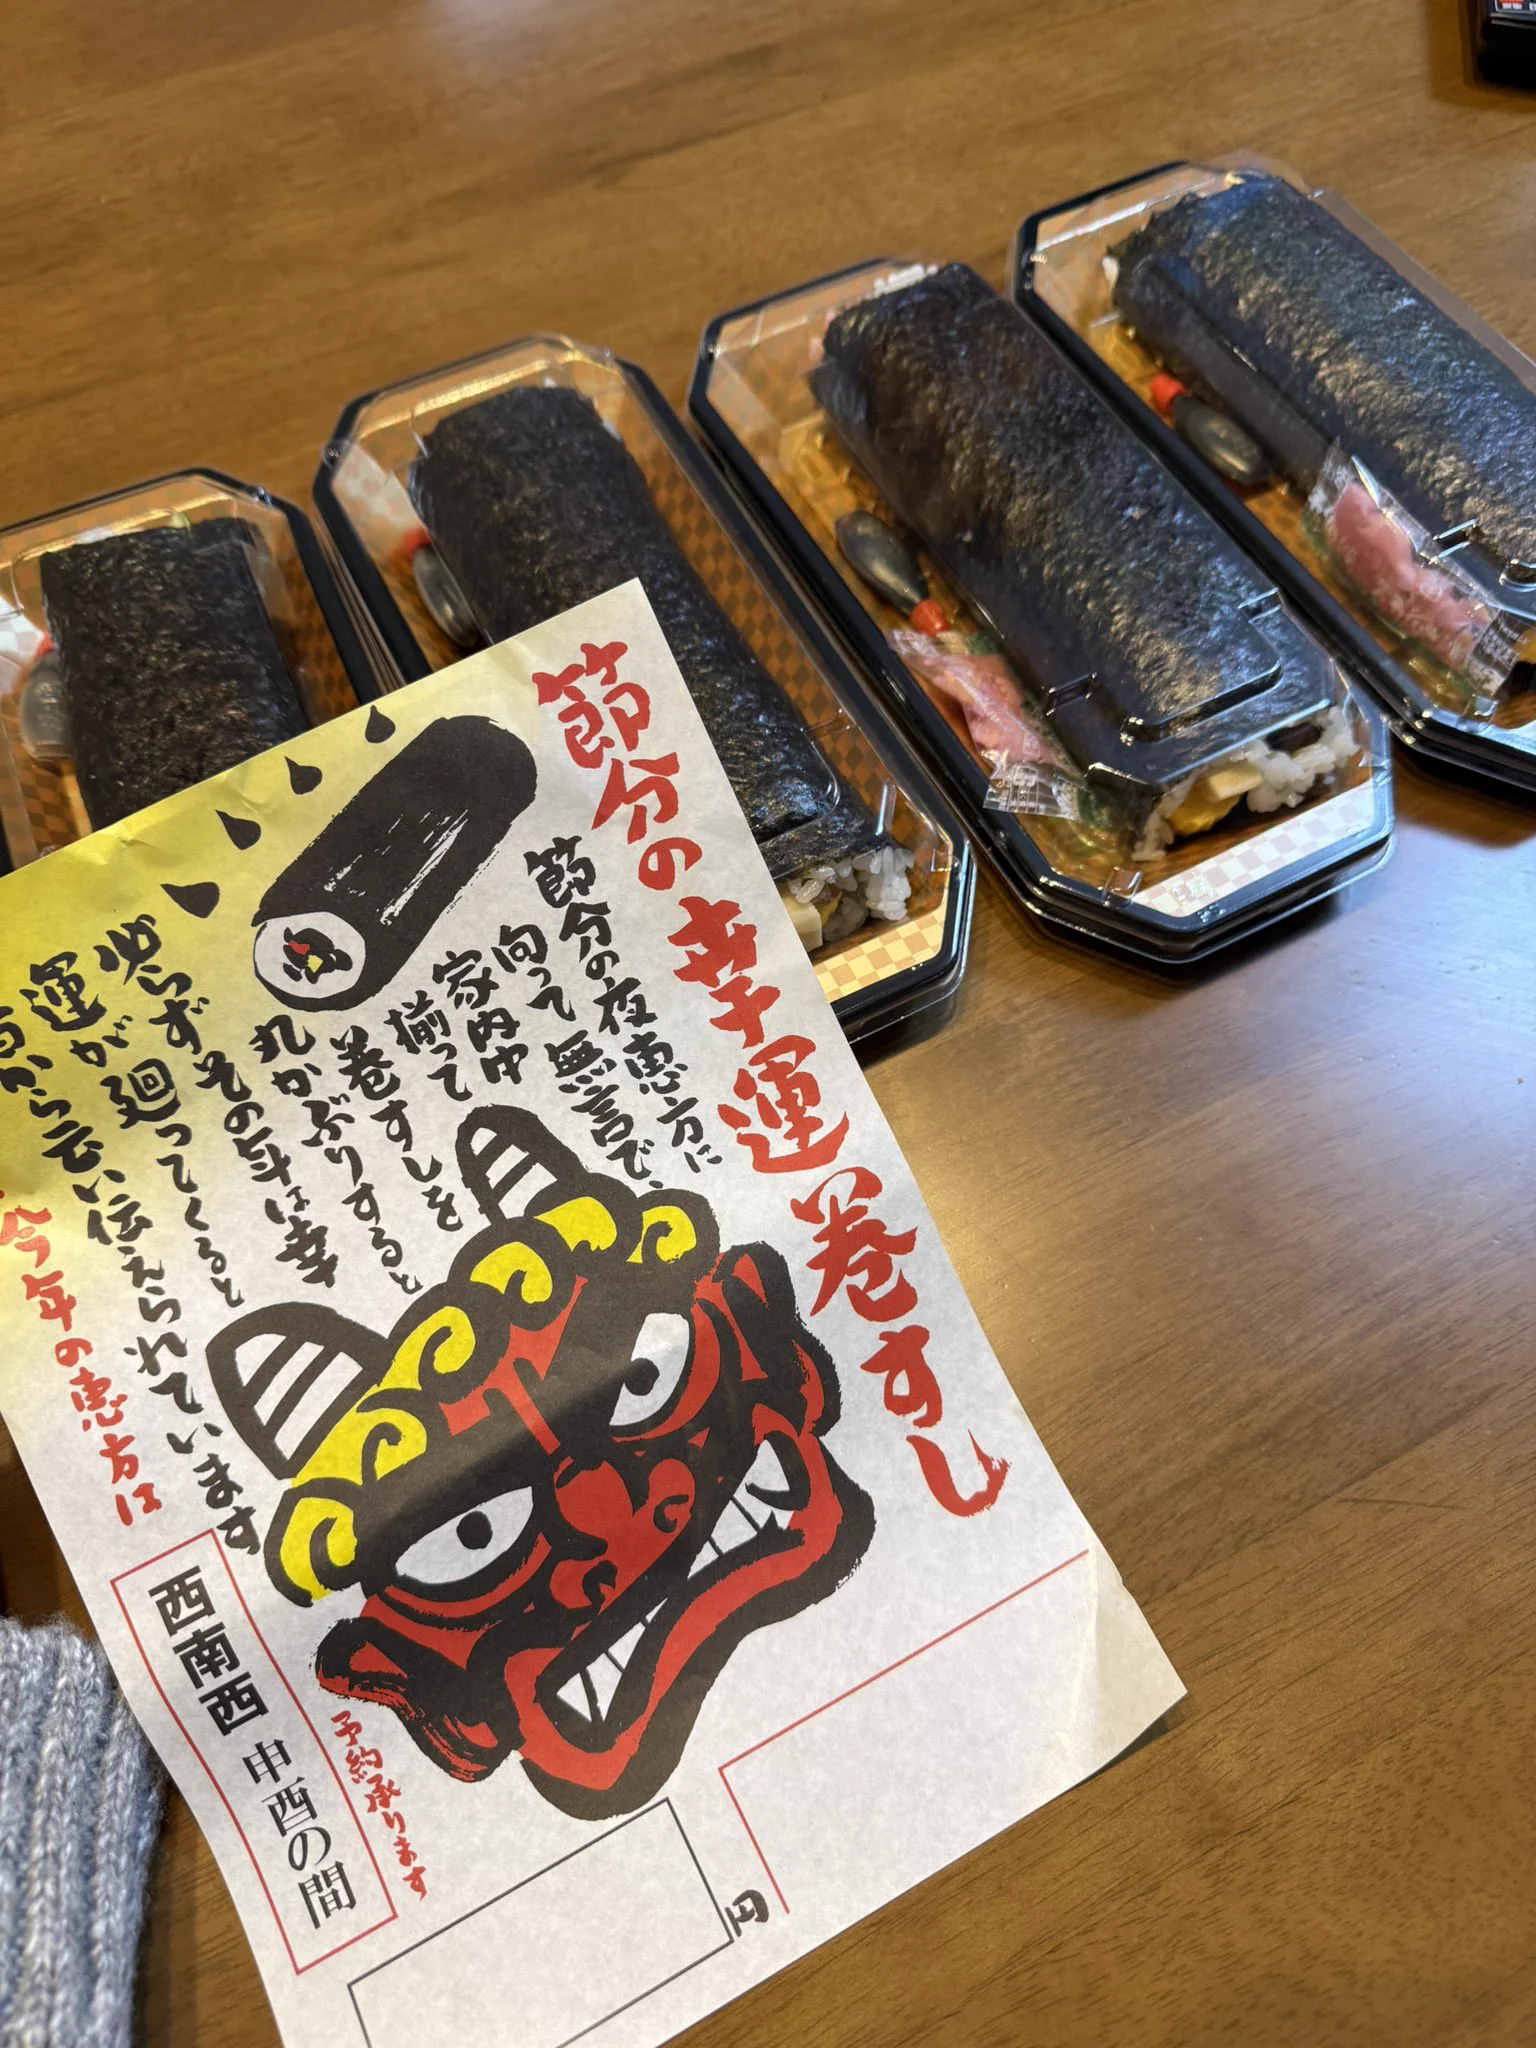 節分の幸運巻すし
節分の夜恵方に
向って無言で、
家内中
揃って
巻すしを
丸かぶりすると
必らずその年は幸
運が廻ってくると
昔から云い伝えられています
今年の恵方は
西南西 申酉の間
予約承ります
円